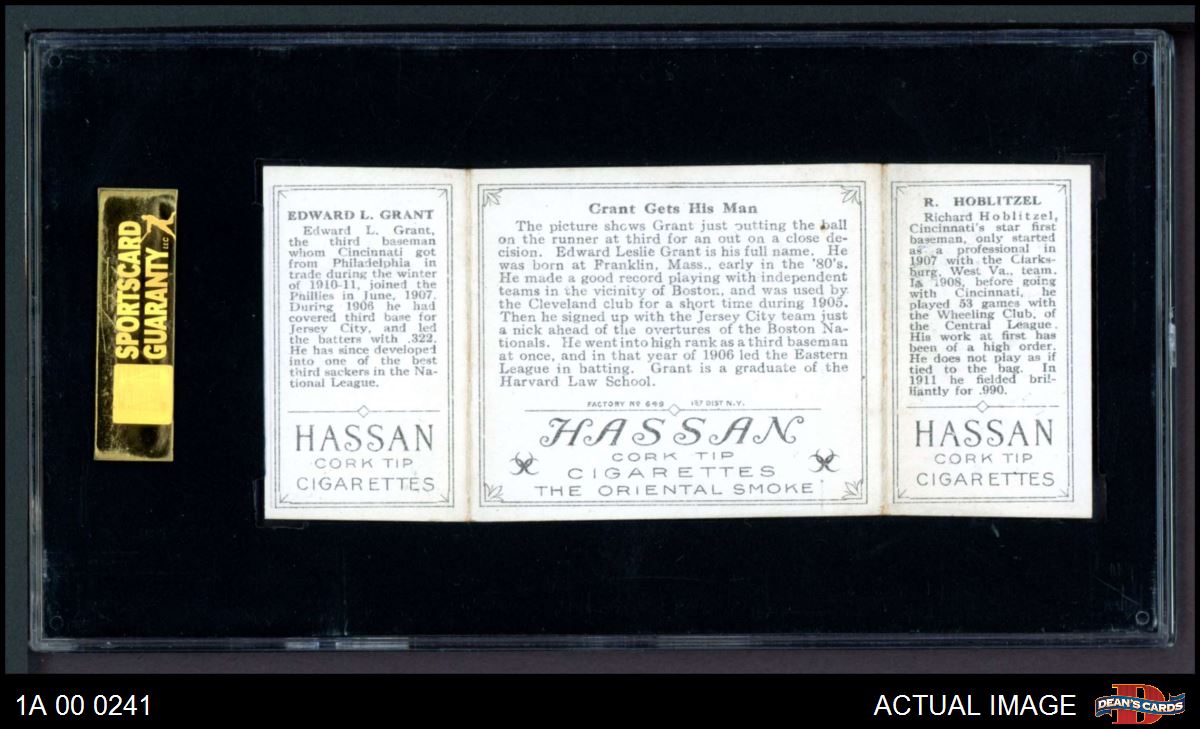 SPORTSCARD
GUARANTY LLC
EDWARD L. GRANT
Edward L. Grant,
the third baseman
whom Cincinnati got
from Philadelphia in
trade during the winter
of 1910-11, joined the
Phillies in June, 1907.
During 1906 he had
covered third base for
Jersey City, and led
the batters with .322.
He has since developed
into one of the best
third sackers in the Na-
tional League.
HASSAN
CORK TIP
CIGARETTES
Grant Gets His Man
The picture shows Grant just putting the ball
on the runner at third for an out on a close de-
cision. Edward Leslie Grant is his full name. He
was born at Franklin, Mass., early in the '80's.
He made a good record playing with independent
teams in the vicinity of Boston, and was used by
the Cleveland club for a short time during 1905.
Then he signed up with the Jersey City team just
a nick ahead of the overtures of the Boston Na-
tionals. He went into high rank as a third baseman
at once, and in that year of 1906 led the Eastern
League in batting. Grant is a graduate of the
Harvard Law School.
FACTORY Nº 649 1ST DIST N.Y.
HASSAN
CORK TIP
CIGARETTES
THE ORIENTAL SMOKE
R. HOBLITZEL
Richard Hoblitzel,
Cincinnati's star first
baseman, only started
as a professional in
1907 with the Clarks-
burg, West Va., team.
In 1908, before going
with Cincinnati, he
played 53 games with
the Wheeling Club, of
the Central League.
His work at first has
been of a high order.
He does not play as if
tied to the bag. In
1911 he fielded bril-
liantly for .990.
HASSAN
CORK TIP
CIGARETTES
1A 00 0241
ACTUAL IMAGE
DEAN'S CARDS